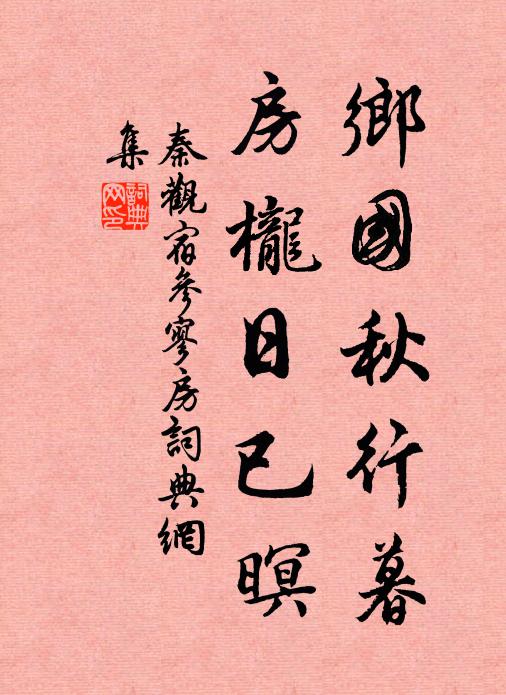 鄉國秋行暮
房櫳日已暝
秦觀宿參寥房詞典網
集
詞典
网印